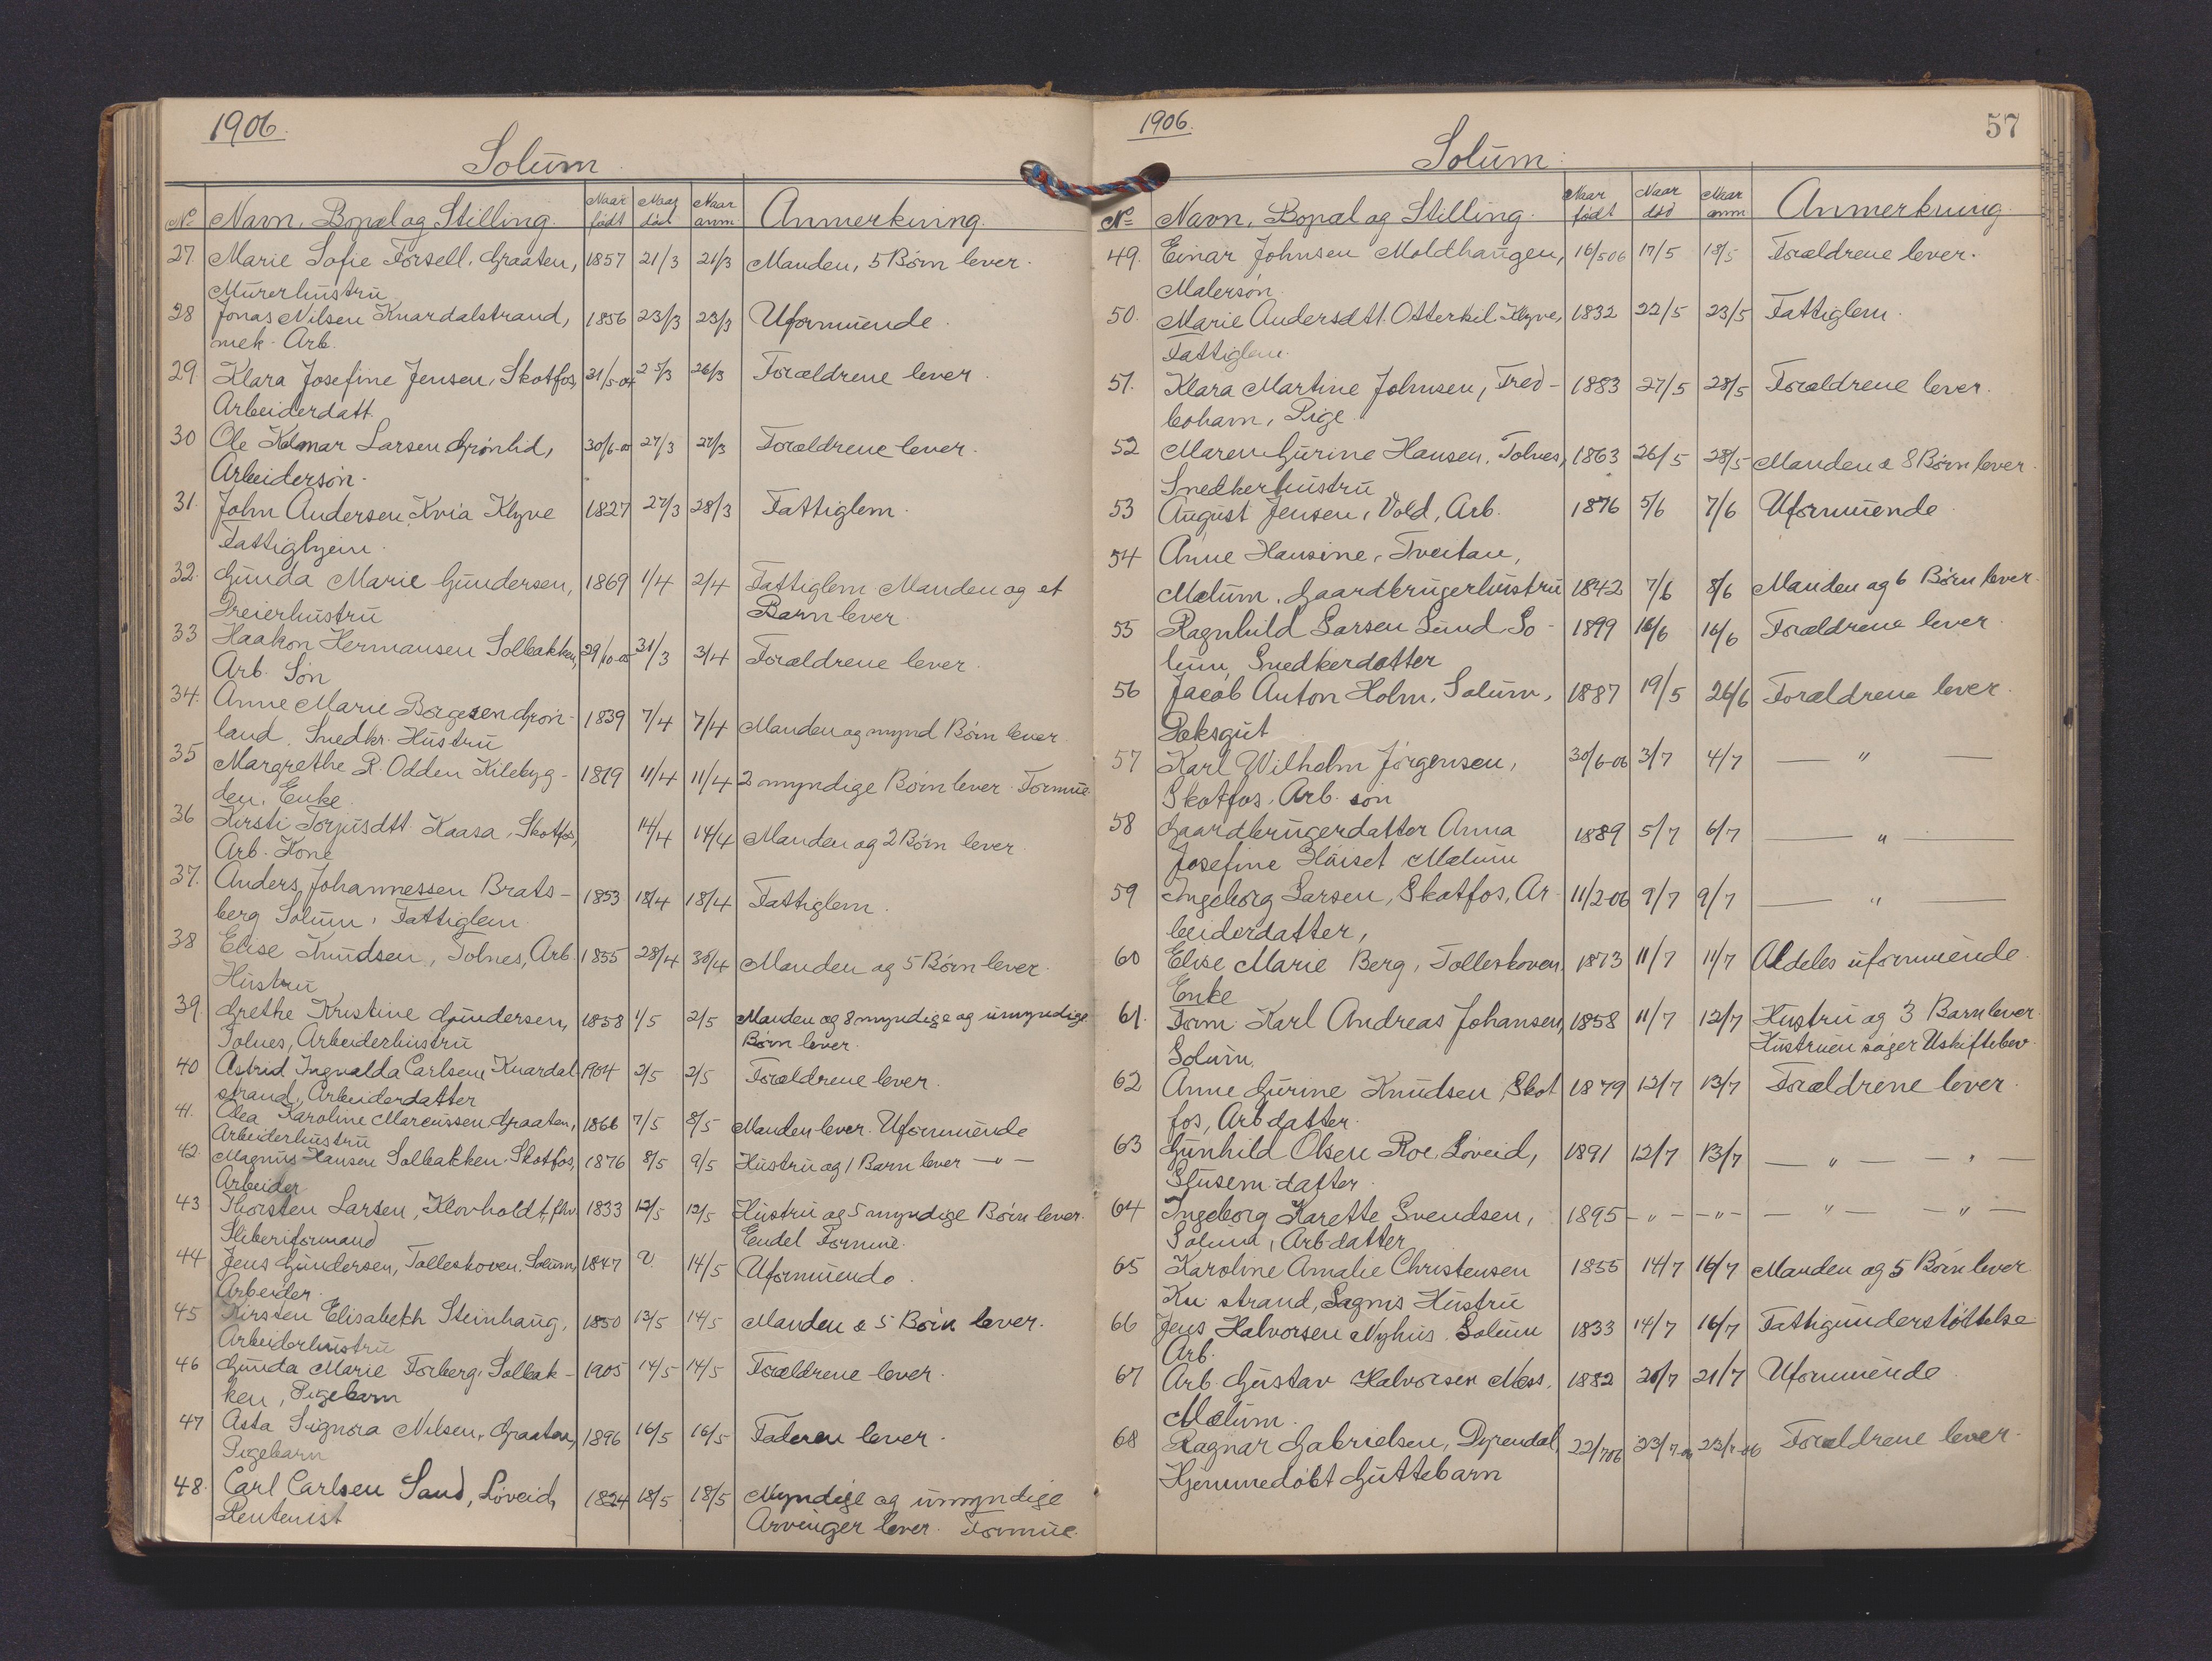 1906.
Solum.
No Navn, Bopæl og Stilling. Naar født Naar død Naar anm. Anmerkning.
27. Marie Sofie Forsell, Graaten, 1857 21/3 21/3 Manden, 5 Børn lever.
Murerhustru
28 Jonas Nilsen Knardalstrand, 1856 23/3 23/3 Uformuende.
mek. Arb.
29. Klara Josefine Jensen, Skotfos, 31/5-04 25/3 26/3 Forældrene lever.
Arbeiderdatt.
30 Ole Kolmar Larsen Grønlid, 30/6-05 27/3 27/3 Forældrene lever.
Arbeidersøn.
31. John Andersen Kvia Klyve 1827 27/3 28/3 Fattiglem.
Fattighjem.
32. Gunda Marie Gundersen, 1869 1/4 2/4 Fattiglem Manden og et
Dreierhustru Barn lever.
33 Haakon Hermansen Solbakken, 29/10-05 31/3 3/4 Forældrene lever.
Arb. Søn
34. Anne Marie Borgesen Grøn- 1839 7/4 7/4 Manden og mynd Børn lever
land. Snedkr. Hustru
35 Margrethe P. Odden Kilebyg- 1819 11/4 11/4 2 myndige Børn lever. Formue.
den. Enke.
36 Kirsti Torjusdtt. Kaasa, Skotfos, 14/4 14/4 Manden og 2 Børn lever.
Arb. Kone
37. Anders Johannessen Brats- 1853 18/4 18/4 Fattiglem.
berg Solum, Fattiglem.
38 Elise Knudsen, Tolnes, Arb. 1855 28/4 30/4 Manden og 5 Børn lever.
Hustru
39. Grethe Kristine Gundersen, 1858 1/5 2/5 Manden og 8 myndige og umyndige
Tolnes, Arbeiderhustru Børn lever.
40 Astrid Ingvalda Carlsen Knardal 1904 2/5 2/5 Forældrene lever.
strand, Arbeiderdatter
41. Olea Karoline Marcussen Graaten, 1866 7/5 8/5 Manden lever. Uformuende
Arbeiderhustru
42. Magnus Hansen Solbakken Skotfos, 1876 8/5 9/5 Hustru og 1 Barn lever — " —
Arbeider
43 Thorsten Larsen, Klovholdt, fhv. 1833 12/5 12/5 Hustru og 5 myndige Børn lever.
Sliberiformand Endel Formue.
44 Jens Gundersen, Tolleskoven, Solum, 1847 14/5 Uformuende.
Arbeider.
45 Kirsten Elisabeth Steinhaug, 1850 13/5 14/5 Manden & 5 Børn lever.
Arbeiderhustru
46 Gunda Marie Forberg, Solbak- 1905 14/5 14/5 Forældrene lever.
ken, Pigebarn
47 Asta Signora Nilsen, Graaten, 1896 16/5 16/5 Faderen lever.
Pigebarn
48. Carl Carlsen Sand, Løveid, 1824 18/5 18/5 Myndige og umyndige
Rentenist Arvinger lever. Formue.
1906.
57
Solum.
No Navn, Bopæl og Stilling. Naar født Naar død Naar anm Anmerkning.
49. Einar Johnsen Moldhaugen, 16/5 06 17/5 18/5 Forældrene lever.
Malersøn.
50. Marie Andersdtt. Otterkil. Klyve, 1832 22/5 23/5 Fattiglem.
Fattiglem.
51. Klara Martine Johnsen, Fred- 1883 27/5 28/5 Forældrene lever.
boharn, Pige.
52 Maren Gurine Hansen, Tolnes, 1863 26/5 28/5 Manden & 8 Børn lever.
Snedkerhustru
53 August Jensen, Vold, Arb. 1876 5/6 7/6 Uformuende
54 Anne Hansine, Tveitan,
Mælum. Gaardbrugerhustru 1842 7/6 8/6 Manden og 6 Børn lever.
55 Ragnhild Larsen Lund So- 1899 16/6 16/6 Forældrene lever
lum, Snedkerdatter
56 Jacob Anton Holm, Solum, 1887 19/5 26/6 Forældrene lever.
Dæksgut
57 Karl Wilhelm Jørgensen, 30/6-06 3/7 4/7 — " —
Skotfos, Arb. søn
58 Gaardbrugerdatter Anna 1889 5/7 6/7 — " —
Josefine Høiset Mælum
59 Ingeborg Larsen, Skotfos, Ar- 11/2-06 9/7 9/7 — " —
beiderdatter,
60 Elise Marie Berg, Tolleskoven 1873 11/7 11/7 Aldeles uformuende.
Enke
61. Form. Karl Andreas Johansen, 1858 11/7 12/7 Hustru og 3 Barn lever.
Solum. Hustruen søger Uskiftebev.
62 Anne Gurine Knudsen, Skot 1879 12/7 13/7 Forældrene lever.
fos, Arb datter.
63 Gunhild Olsen Roe, Løveid, 1891 12/7 13/7 — " — — " —
Slusem. datter.
64 Ingeborg Karette Svendsen, 1895 — " — — " — — " — — " —
Solum, Arb datter
65 Karoline Amalie Christensen 1855 14/7 16/7 Manden og 5 Børn lever
Kn. strand, Sagms Hustru
66 Jens Halvorsen Nyhus, Solum 1833 14/7 16/7 Fattigunderstøttelse
Arb.
67 Arb. Gustav Halvorsen Mæss, 1882 20/7 21/7 Uformuende
Mælum.
68 Ragnar Gabrielsen, Dyrendal, 22/7 06 23/7-06 23/7-06 Forældrene lever.
Hjemmedøbt Guttebarn